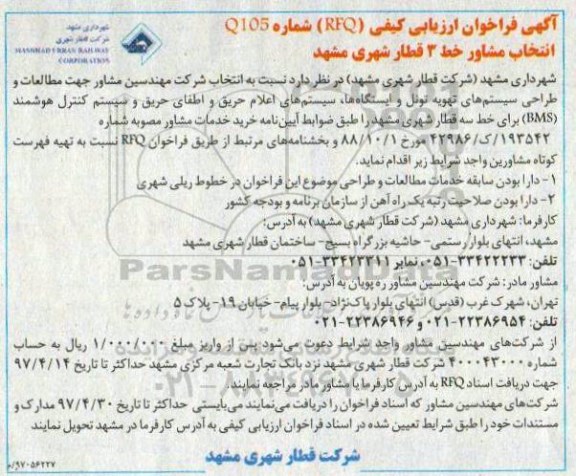 شهرداری مشهد
شرکت قطار شهری
MASHHAD URBAN RAILWAY
CORPORATION
آگهی فراخوان ارزیابی کیفی (RFQ) شماره Q105
انتخاب مشاور خط ۳ قطار شهری مشهد
شهرداری مشهد (شرکت قطار شهری مشهد) در نظر دارد نسبت به انتخاب شرکت مهندسین مشاور جهت مطالعات و
طراحی سیستم‌های تهویه تونل و ایستگاه‌ها، سیستم‌های اعلام حریق و اطفای حریق و سیستم کنترل هوشمند
(BMS) برای خط سه قطار شهری مشهد را طبق ضوابط آیین‌نامه خرید خدمات مشاور مصوبه شماره
۱۹۳۵۴۲/ک/۴۲۹۸۶ مورخ ۸۸/۱۰/۱ و بخشنامه‌های مرتبط از طریق فراخوان RFQ نسبت به تهیه فهرست
کوتاه مشاورین واجد شرایط زیر اقدام نماید.
۱- دارا بودن سابقه خدمات مطالعات و طراحی موضوع این فراخوان در خطوط ریلی شهری
۲- دارا بودن صلاحیت رتبه یک راه آهن از سازمان برنامه و بودجه کشور
کارفرما: شهرداری مشهد (شرکت قطار شهری مشهد) به آدرس:
مشهد، انتهای بلوار رستمی- حاشیه بزرگراه بسیج- ساختمان قطار شهری مشهد
تلفن: ۳۳۴۲۲۲۳۳-۰۵۱، نمابر ۳۳۴۲۳۳۴۱-۰۵۱
مشاور مادر: شرکت مهندسین مشاور ره پویان به آدرس:
تهران، شهرک غرب (قدس) انتهای بلوار پاک‌نژاد- بلوار پیام- خیابان ۱۹- پلاک ۵
تلفن: ۲۲۳۸۶۹۵۴-۰۲۱ و ۲۲۳۸۶۹۴۶-۰۲۱
از شرکت‌های مهندسین مشاور واجد شرایط دعوت می‌شود پس از واریز مبلغ ۱/۰۰۰/۰۰۰ ریال به حساب
شماره ۴۰۰۰۴۳۰۰۰ شرکت قطار شهری مشهد نزد بانک تجارت شعبه مرکزی مشهد حداکثر تا تاریخ ۹۷/۴/۱۴
جهت دریافت اسناد RFQ به آدرس کارفرما یا مشاور مادر مراجعه نمایند.
شرکت‌های مهندسین مشاور که اسناد فراخوان را دریافت می‌نمایند می‌بایستی حداکثر تا تاریخ ۹۷/۴/۳۰ مدارک و
مستندات خود را طبق شرایط تعیین شده در اسناد فراخوان ارزیابی کیفی به آدرس کارفرما در مشهد تحویل نمایند
شرکت قطار شهری مشهد
۹۷۰۵۶۲۲۷/م
ParsNamadData